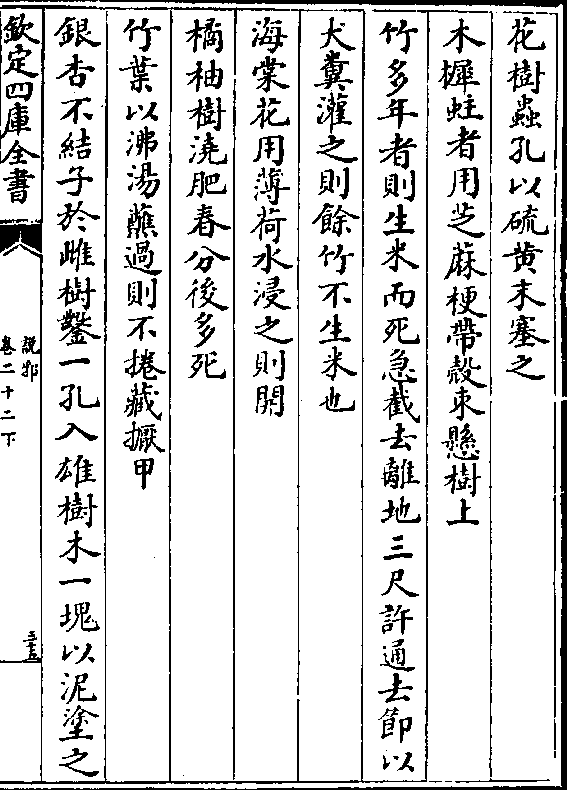 花樹蟲孔以硫黄末塞之
木樨蛀者用芝蔴梗帶殼束懸樹上
竹多年者則生米而死急截去離地三尺許通去節以
犬糞灌之則餘竹不生米也
海棠花用薄荷水浸之則開
橘柚樹澆肥春分後多死
竹葉以沸湯蘸過則不捲藏擫甲
銀杏不結子於雌樹鑿一孔入雄樹木一塊以泥塗之
欽定四庫全書
説郛
卷二十二下
三十五